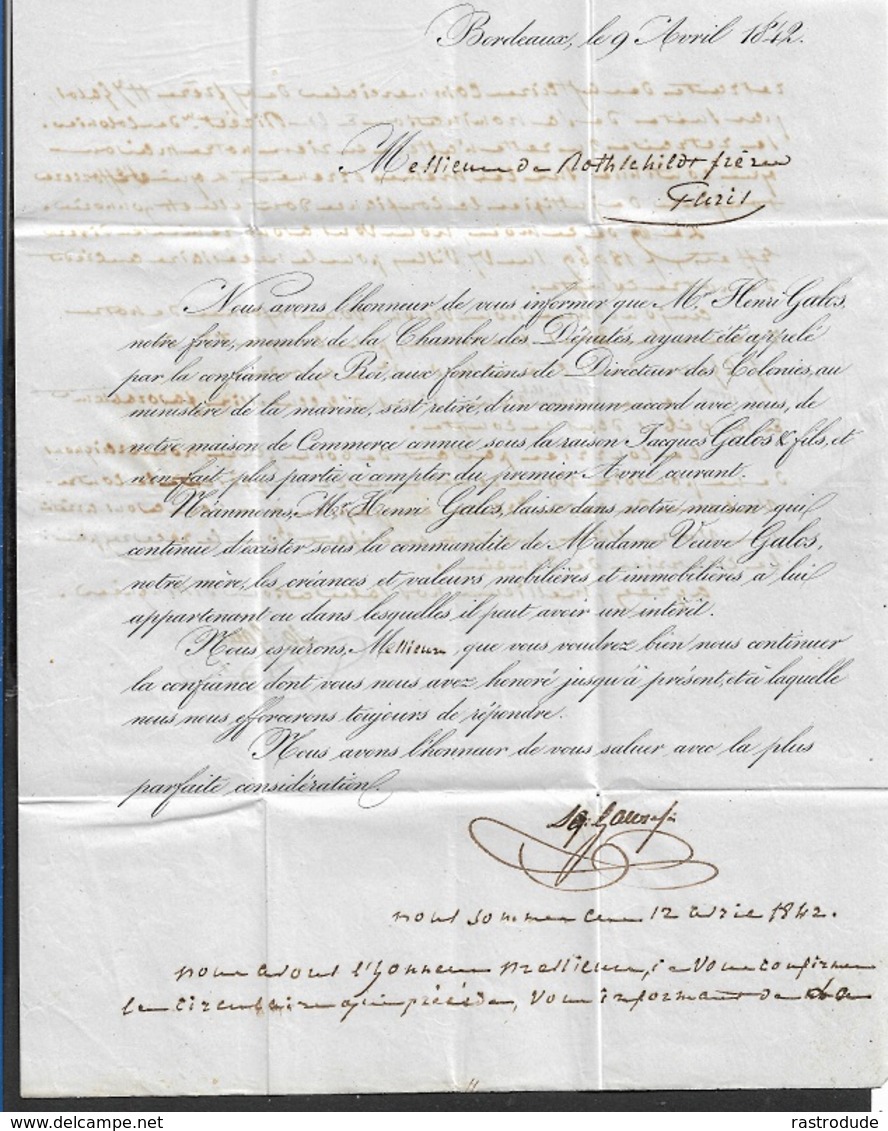 Bordeaux, le 9 Avril 1842.
Messieurs de Rothschild frères
Paris
Nous avons l'honneur de vous informer que Mr. Henri Galos,
notre frère, membre de la Chambre des Députés, ayant été appelé
par la confiance du Roi, aux fonctions de Directeur des Colonies, au
ministère de la marine, s'est retiré, d'un commun accord avec nous, de
notre maison de Commerce connue sous la raison Jacques Galos & fils, et
n'en fait plus partie à compter du premier Avril courant.
Néanmoins, Mr. Henri Galos, laisse dans notre maison qui
continue d'exister sous la commandite de Madame Veuve Galos,
notre mère, les créances et valeurs mobilières et immobilières à lui
appartenant ou dans lesquelles il peut avoir un intérêt.
Nous espérons, Messieurs, que vous voudrez bien nous continuer
la confiance dont vous nous avez honoré jusqu'à présent, et à laquelle
nous nous efforcerons toujours de répondre.
Nous avons l'honneur de vous saluer avec la plus
parfaite considération.
Jq. Galos & fs
nous sommes au 12 avril 1842.
nous avons l'honneur Messieurs, de vous confirmer
la circulaire qui précède, vous informant de la
rastrodude